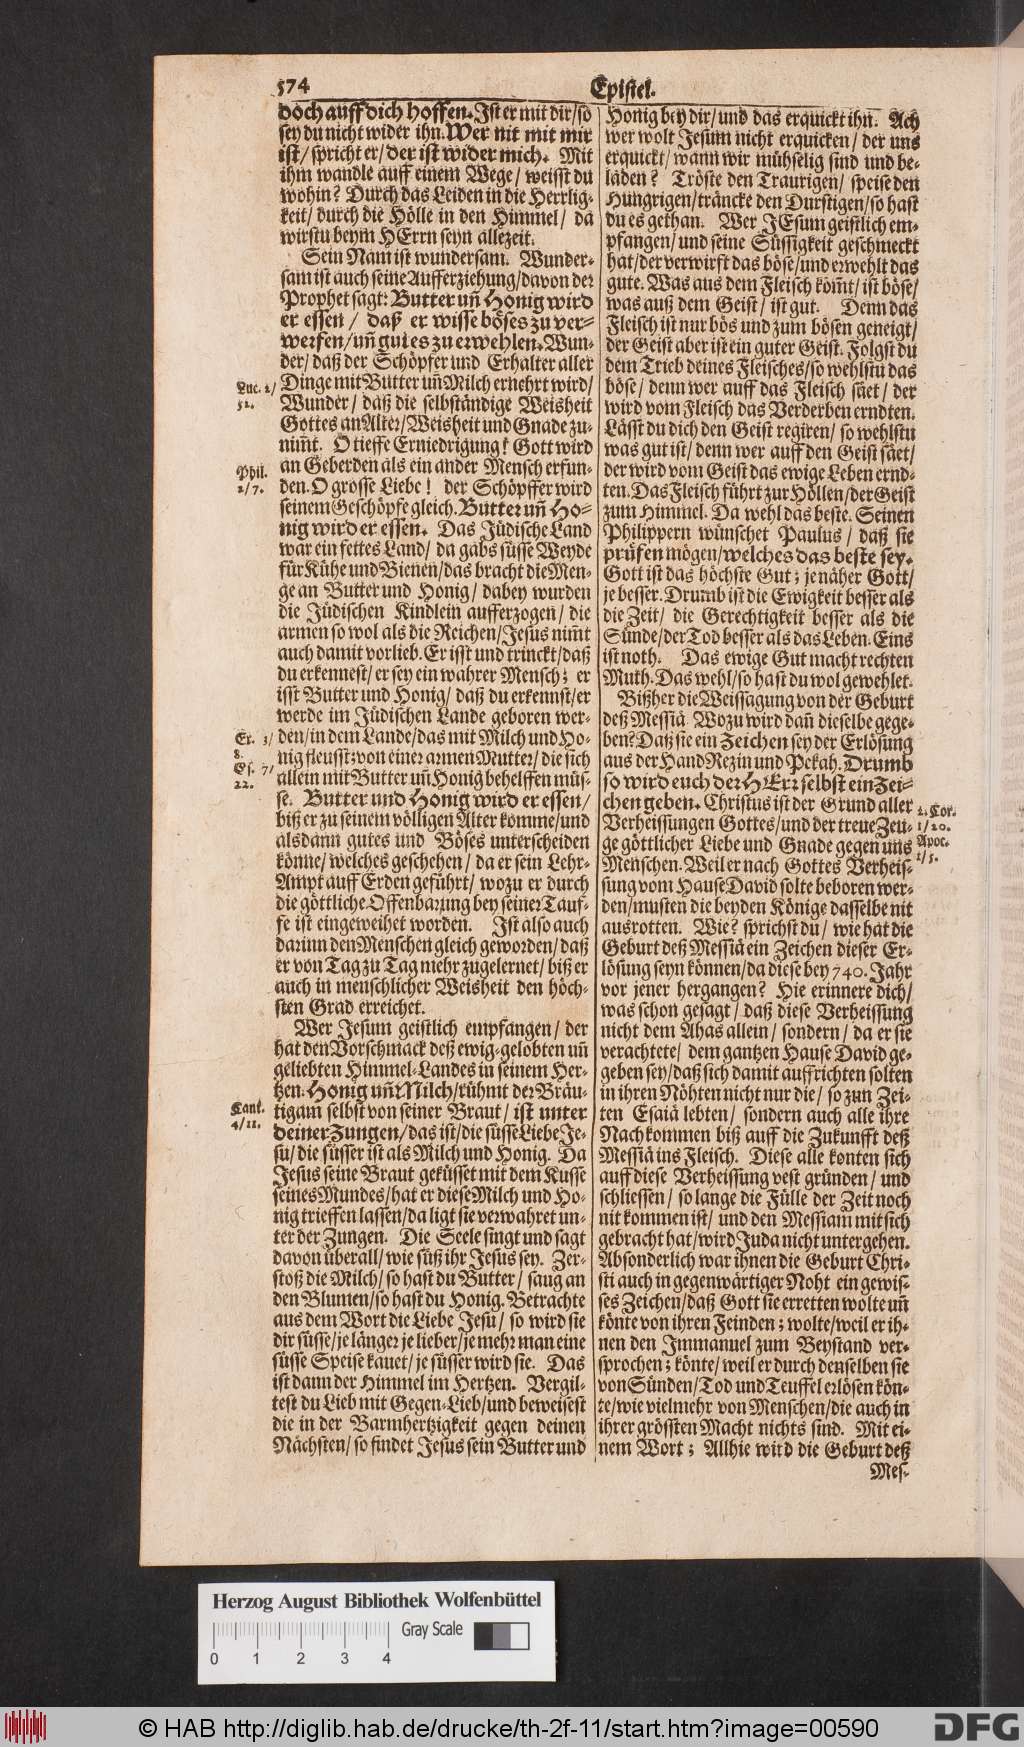 574
Epistel.
doch auff dich hoffen. Ist er mit dir/ so
sey du nicht wider ihn. Wer nit mit mir
ist/ spricht er/ der ist wider mich. Mit
ihm wandle auff einem Wege/ weisst du
wohin? Durch das Leiden in die Herrlig-
keit/ durch die Hölle in den Himmel/ da
wirstu beym HErrn seyn allezeit.
Sein Nam ist wundersam. Wunder-
sam ist auch seine Aufferziehung/ davon der
Prophet sagt: Butter uñ Honig wird
er essen/ daß er wisse böses zu ver-
werfen/ uñ gutes zu erwehlen. Wun-
der/ daß der Schöpfer und Erhalter aller
Dinge mit Butter uñ Milch ernehrt wird/
Wunder/ daß die selbständige Weisheit
Gottes an Alter/ Weisheit und Gnade zu-
nim̃t. O tieffe Erniedrigung! Gott wird
an Geberden als ein ander Mensch erfun-
den. O grosse Liebe! der Schöpffer wird
seinem Geschöpfe gleich. Butter uñ Ho-
nig wird er essen. Das Jüdische Land
war ein fettes Land/ da gabs süsse Weyde
für Kühe und Bienen/ das bracht die Men-
ge an Butter und Honig/ dabey wurden
die Jüdischen Kindlein aufferzogen/ die
armen so wol als die Reichen/ Jesus nim̃t
auch damit vorlieb. Er isst und trinckt/ daß
du erkennest/ er sey ein wahrer Mensch; er
isst Butter und Honig/ daß du erkennst/ er
werde im Jüdischen Lande geboren wer-
den/ in dem Lande/ das mit Milch und Ho-
nig fleusst; von einer armen Mutter/ die sich
allein mit Butter uñ Honig behelffen müs-
se. Butter und Honig wird er essen/
biß er zu seinem völligen Alter komme/ und
alsdann gutes und Böses unterscheiden
könne/ welches geschehen/ da er sein Lehr-
Ampt auff Erden geführt/ wozu er durch
die göttliche Offenbarung bey seiner Tauf-
fe ist eingeweihet worden. Ist also auch
darinn den Menschen gleich geworden/ daß
er von Tag zu Tag mehr zugelernet/ biß er
auch in menschlicher Weisheit den höch-
sten Grad erreichet.
Wer Jesum geistlich empfangen/ der
hat den Vorschmack deß ewig-gelobten uñ
geliebten Himmel-Landes in seinem Her-
tzen. Honig uñ Milch/ rühmt der Bräu-
tigam selbst von seiner Braut/ ist unter
deiner Zungen/ das ist/ die süsse Liebe Je-
su/ die süsser ist als Milch und Honig. Da
Jesus seine Braut geküsset mit dem Kusse
seines Mundes/ hat er diese Milch und Ho-
nig trieffen lassen/ da ligt sie verwahret un-
ter der Zungen. Die Seele singt und sagt
davon überall/ wie süß ihr Jesus sey. Zer-
stoß die Milch/ so hast du Butter/ saug an
den Blumen/ so hast du Honig. Betrachte
aus dem Wort die Liebe Jesu/ so wird sie
dir süsse/ je länger je lieber/ je mehr man eine
süsse Speise kauet/ je süsser wird sie. Das
ist dann der Himmel im Hertzen. Vergil-
test du Lieb mit Gegen-Lieb/ und beweisest
die in der Barmhertzigkeit gegen deinen
Nächsten/ so findet Jesus sein Butter und
Luc. 2/
52.
Phil.
2/ 7.
Ex. 3/
8.
Es. 7/
22.
Cant.
4/ 11.
Honig bey dir/ und das erquickt ihn. Ach
wer wolt Jesum nicht erquicken/ der uns
erquickt/ wann wir mühselig sind und be-
laden? Tröste den Traurigen/ speise den
Hungrigen/ träncke den Durstigen/ so hast
du es gethan. Wer JEsum geistlich em-
pfangen/ und seine Süssigkeit geschmeckt
hat/ der verwirft das böse/ und erwehlt das
gute. Was aus dem Fleisch köm̃t/ ist böse/
was auß dem Geist/ ist gut. Denn das
Fleisch ist nur bös und zum bösen geneigt/
der Geist aber ist ein guter Geist. Folgst du
dem Trieb deines Fleisches/ so wehlstu das
böse/ denn wer auff das Fleisch säet/ der
wird vom Fleisch das Verderben erndten.
Lässt du dich den Geist regiren/ so wehlstu
was gut ist/ denn wer auff den Geist säet/
der wird vom Geist das ewige Leben ernd-
ten. Das Fleisch führt zur Höllen/ der Geist
zum Himmel. Da wehl das beste. Seinen
Philippern wünschet Paulus/ daß sie
prüfen mögen/ welches das beste sey.
Gott ist das höchste Gut; je näher Gott/
je besser. Drumb ist die Ewigkeit besser als
die Zeit/ die Gerechtigkeit besser als die
Sünde/ der Tod besser als das Leben. Eins
ist noth. Das ewige Gut macht rechten
Muth. Das wehl/ so hast du wol gewehlet.
Bißher die Weissagung von der Geburt
deß Messiä. Wozu wird dañ dieselbe gege-
ben? Daß sie ein Zeichen sey der Erlösung
aus der Hand Rezin und Pekah. Drumb
so wird euch der HErr selbst ein Zei-
chen geben. Christus ist der Grund aller
Verheissungen Gottes/ und der treue Zeu-
ge göttlicher Liebe und Gnade gegen uns
Menschen. Weil er nach Gottes Verheis-
sung vom Hause David solte beboren wer-
den/ musten die beyden Könige dasselbe nit
ausrotten. Wie? sprichst du/ wie hat die
Geburt deß Messiä ein Zeichen dieser Er-
lösung seyn können/ da diese bey 740. Jahr
vor jener hergangen? Hie erinnere dich/
was schon gesagt/ daß diese Verheissung
nicht dem Ahas allein/ sondern/ da er sie
verachtete/ dem gantzen Hause David ge-
geben sey/ daß sich damit auffrichten solten
in ihren Nöhten nicht nur die/ so zun Zei-
ten Esaiä lebten/ sondern auch alle ihre
Nachkommen biß auff die Zukunfft deß
Messiä ins Fleisch. Diese alle konten sich
auff diese Verheissung vest gründen/ und
schliessen/ so lange die Fülle der Zeit noch
nit kommen ist/ und den Messiam mit sich
gebracht hat/ wird Juda nicht untergehen.
Absonderlich war ihnen die Geburt Chri-
sti auch in gegenwärtiger Noht ein gewis-
ses Zeichen/ daß Gott sie erretten wolte uñ
könte von ihren Feinden; wolte/ weil er ih-
nen den Immanuel zum Beystand ver-
sprochen; könte/ weil er durch denselben sie
von Sünden/ Tod und Teuffel erlösen kön-
te/ wie vielmehr von Menschen/ die auch in
ihrer grössten Macht nichts sind. Mit ei-
nem Wort; Allhie wird die Geburt deß
Mes-
2. Cor.
1/ 20.
Apoc.
1/ 5.
Herzog August Bibliothek Wolfenbüttel
Gray Scale
0 1 2 3 4
© HAB http://diglib.hab.de/drucke/th-2f-11/start.htm?image=00590
DFG